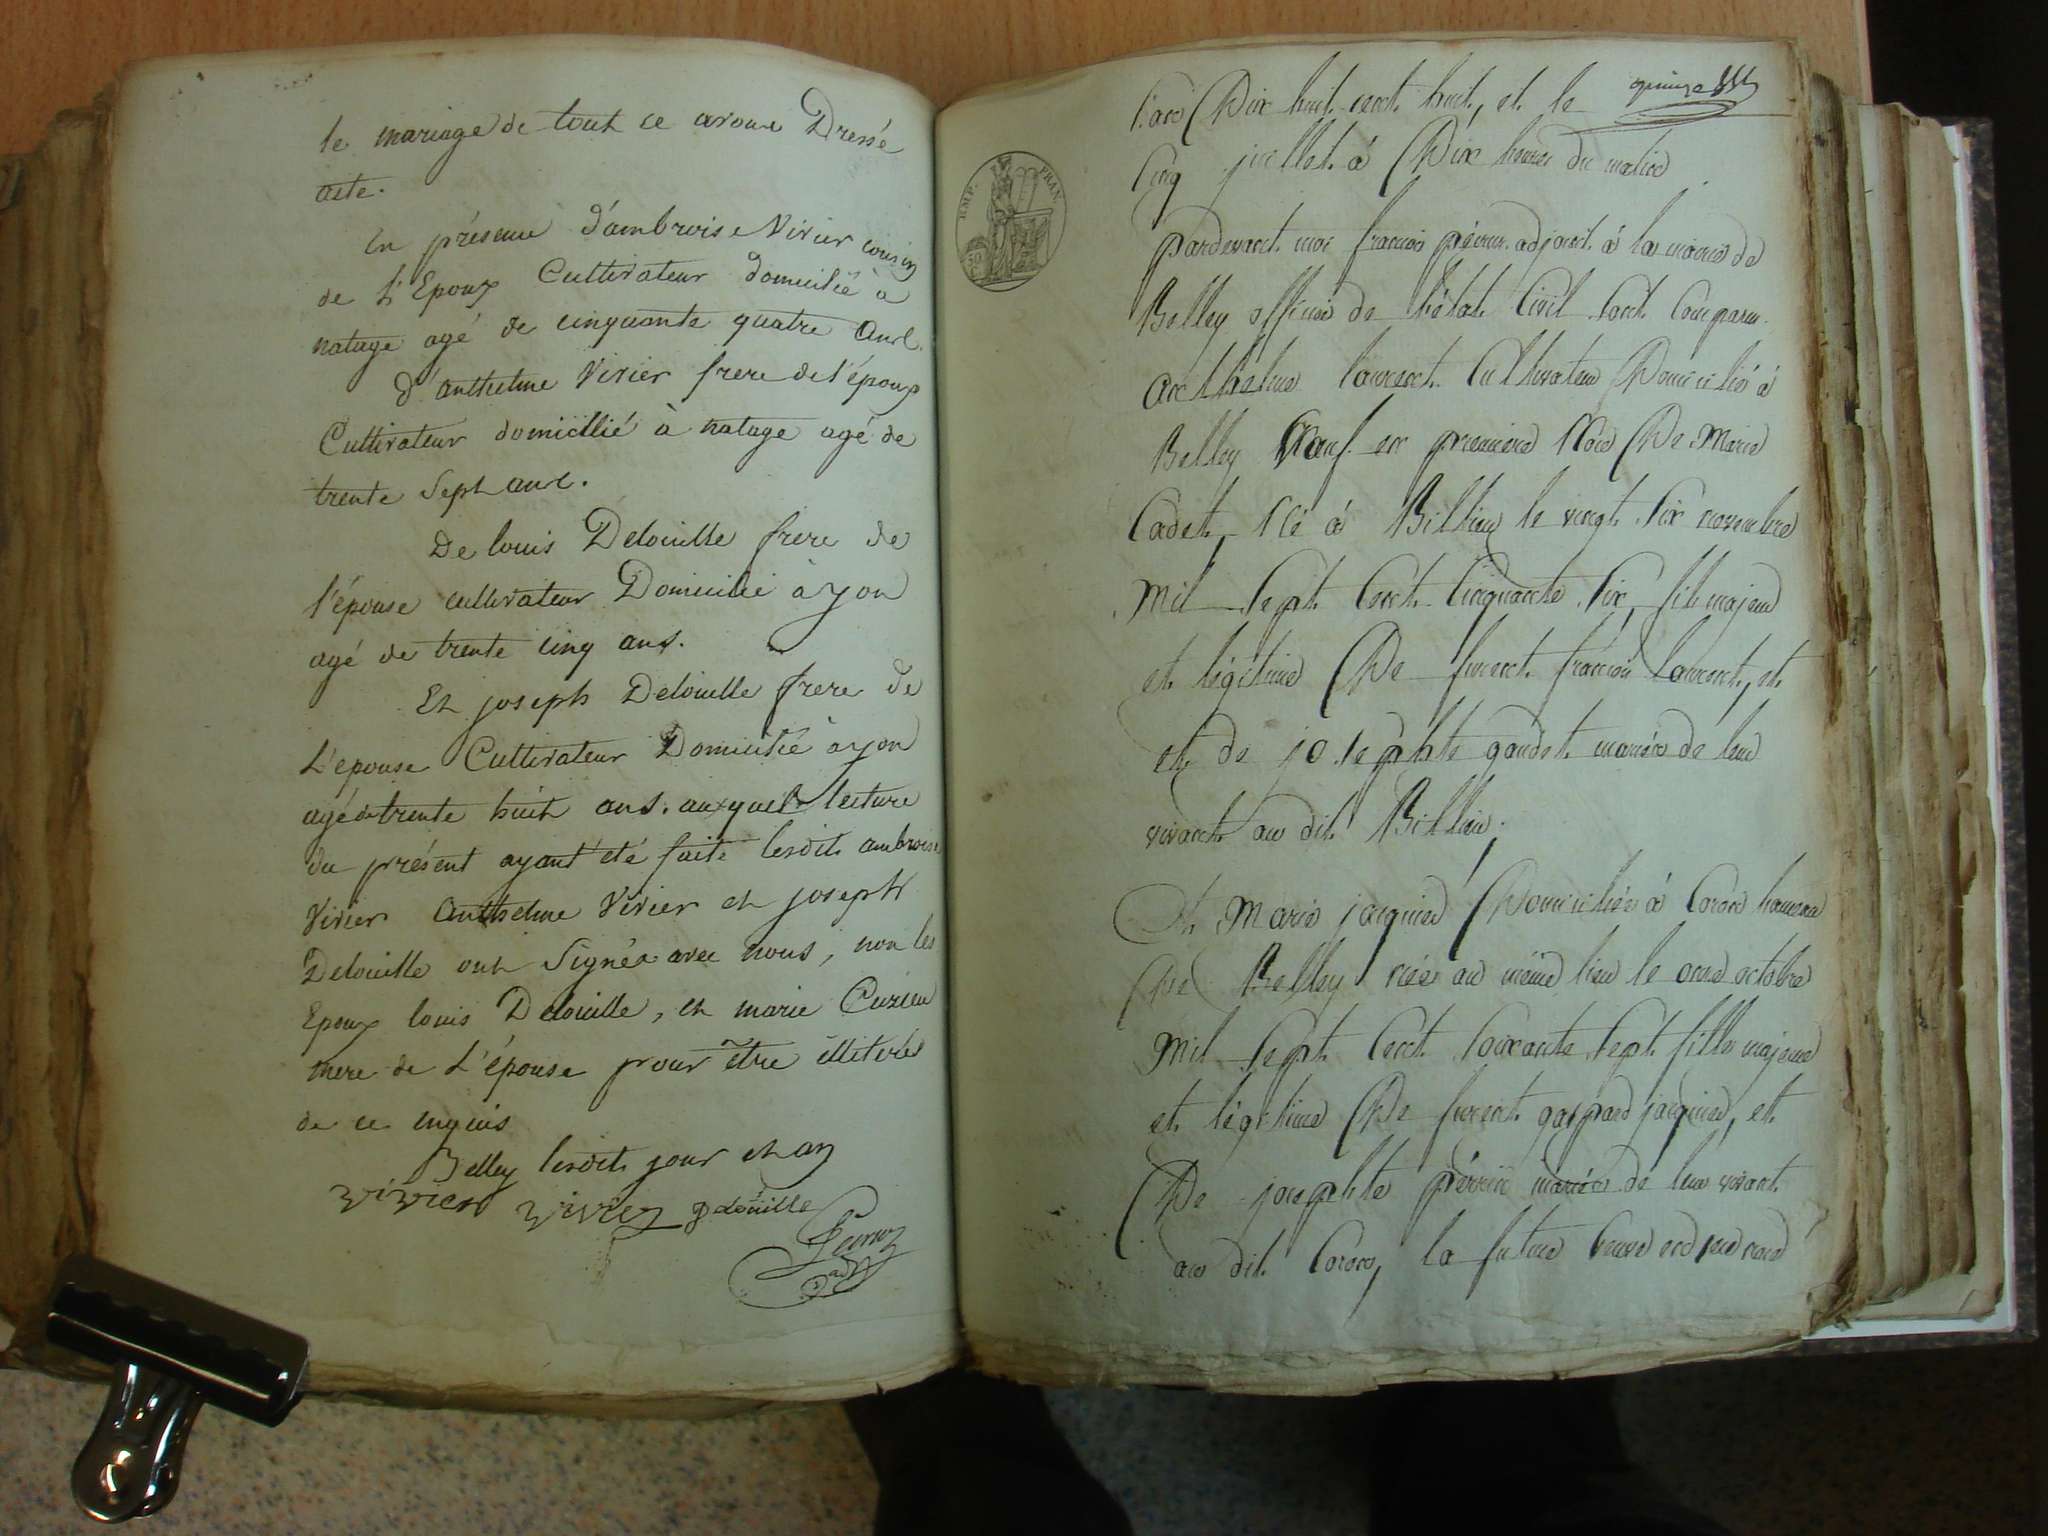 le mariage de tout ce avons Dressé
acte.
En présence d'ambroise Vivier cousin
de L'Epoux Cultivateur domicilié à
natage agé de cinquante quatre ans.
d'anthelme Vivier frere de l'époux
Cultivateur domicillié à natage agé de
trente Sept ans.
De louis Delouille frere de
l'épouse cultivateur Domicilié à yon
agé de trente cinq ans.
Et joseph Delouille frere de
L'épouse Cultivateur Domicilié à yon
agé de trente huit ans. auxquels lecture
du présent ayant été faite lesdits ambroise
Vivier anthelme Vivier et joseph
Delouille ont Signés avec nous, non les
Epoux louis Delouille, et marie
mere de L'épouse pour être illiterés
de ce enquis
Belley lesdits jour et an
vivier vivier Delouille
quinze
L'an Dix huit cent huit, et le
Cinq juillet à Dix heures du matin
EMP. FRAN.
pardevant moi françois adjoint à la mairie de
Belley officier de l'état Civil sont Comparus
anthelme laurent Cultivateur Domicilié à
Belley Veuf en premiere Noce De Marie
Cadet, Né à Billieu le vingt six novembre
Mil Sept Cent Cinquante Six, fils majeur
et légitime De furent françois Laurent, et
et de josephte gaudet mariés de leur
vivant au dit Billieu;
Et Marie jacquier Domiciliée à Coron hameau
De Belley née au même lieu le onze octobre
Mil Sept Cent Soixante Sept fille majeure
et légitime De furent gaspard jacquier, et
De josephte perrin mariés de leur vivant
au dit Coron, la future Veuve en